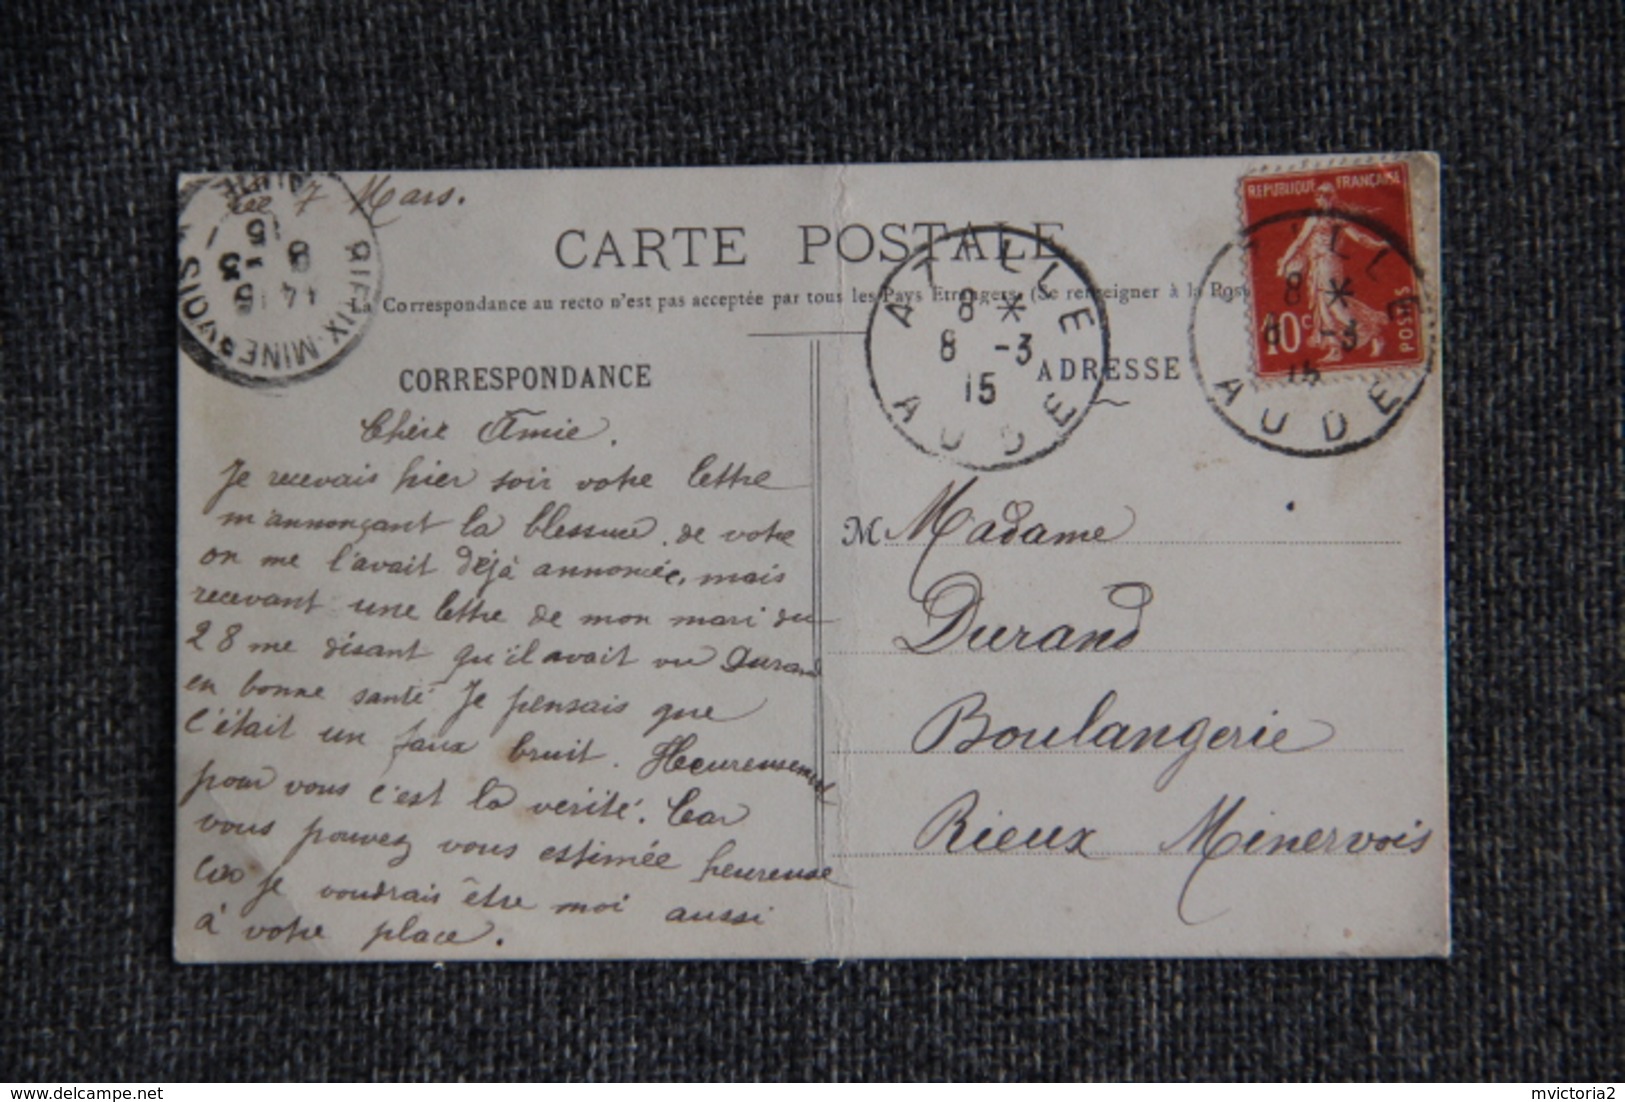 le 7 Mars.
CARTE POSTALE
La Correspondance au recto n'est pas acceptée par tous les Pays Etrangers. (Se renseigner à la Poste
CORRESPONDANCE
Chère Amie.
Je recevais hier soir votre lettre
m'annonçant la blessure de votre
on me l'avait déjà annoncée, mais
recevant une lettre de mon mari du
28 me disant qu'il avait vu Durand
en bonne santé Je pensais que
c'était un faux bruit. Heureusement
pour vous c'est la vérité. Car
vous pouvez vous estimée heureuse
car je voudrais être moi aussi
à votre place.
ADRESSE
M Madame
Durand
Boulangerie
Rieux Minervois
RIEUX-MINERVOIS
AUDE
14 15
8 - 3
15
AZILLE
8 *
8 -3
15
AUDE
REPUBLIQUE FRANÇAISE
10c
POSTES
AZILLE
8 *
8 -3
15
AUDE
delcampe.net
mvictoria2